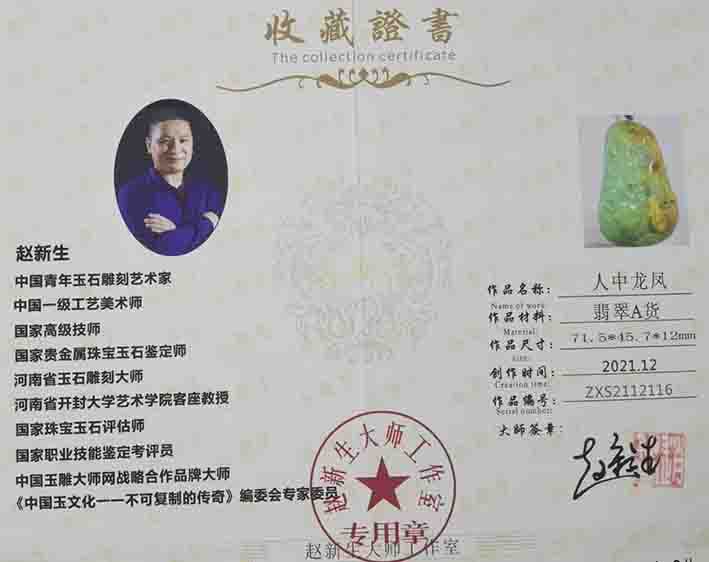 收藏證書
The collection certificate
赵新生
中国青年玉石雕刻艺术家
中国一级工艺美术师
国家高级技师
国家贵金属珠宝玉石鉴定师
河南省玉石雕刻大师
河南省开封大学艺术学院客座教授
国家珠宝玉石评估师
国家职业技能鉴定考评员
中国玉雕大师网战略合作品牌大师
《中国玉文化一一不可复制的传奇》编委会专家委员
作品名称: 人中龙凤
Name of work:
作品材料: 翡翠A货
Material:
作品尺寸: 71.5*45.7*12mm
size:
创作时间: 2021.12
Creation time:
作品编号: ZXS2112116
Serial number:
大师签章:
赵新生
赵新生大师工作室
专用章
赵新生大师工作室